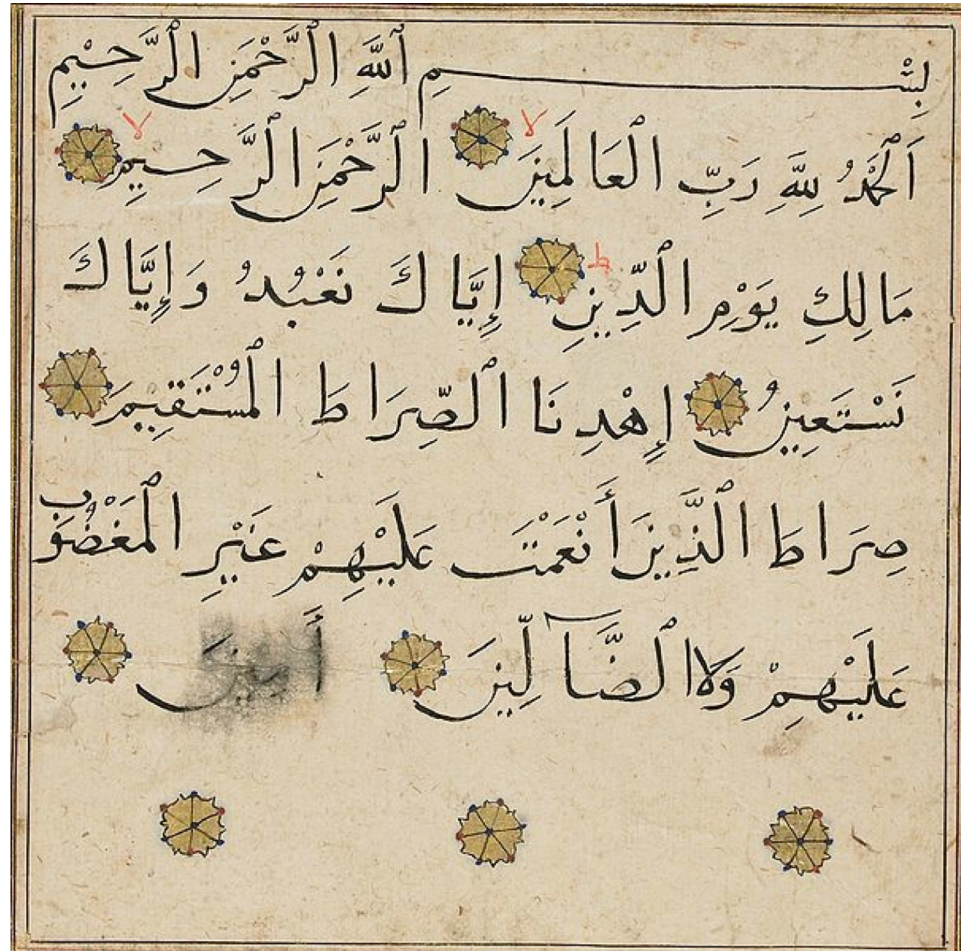 بِسْمِ ٱللَّهِ الرَّحْمَنِ الرَّحِيْمِ
اَلْحَمْدُ لِلَّهِ رَبِّ الْعَالَمِيْنَ لا الرَّحْمَنِ الرَّحِيمِ لا
مَالِكِ يَوْمِ الدِّيْنِ ط إِيَّاكَ نَعْبُدُ وَإِيَّاكَ
نَسْتَعِيْنُ إِهْدِنَا الصِّرَاطَ الْمُسْتَقِيْمَ
صِرَاطَ الَّذِيْنَ أَنْعَمْتَ عَلَيْهِمْ غَيْرِ الْمَغْضُوْبِ
عَلَيْهِمْ وَلَا الضَّآلِّيْنَ أَمِيْنَ